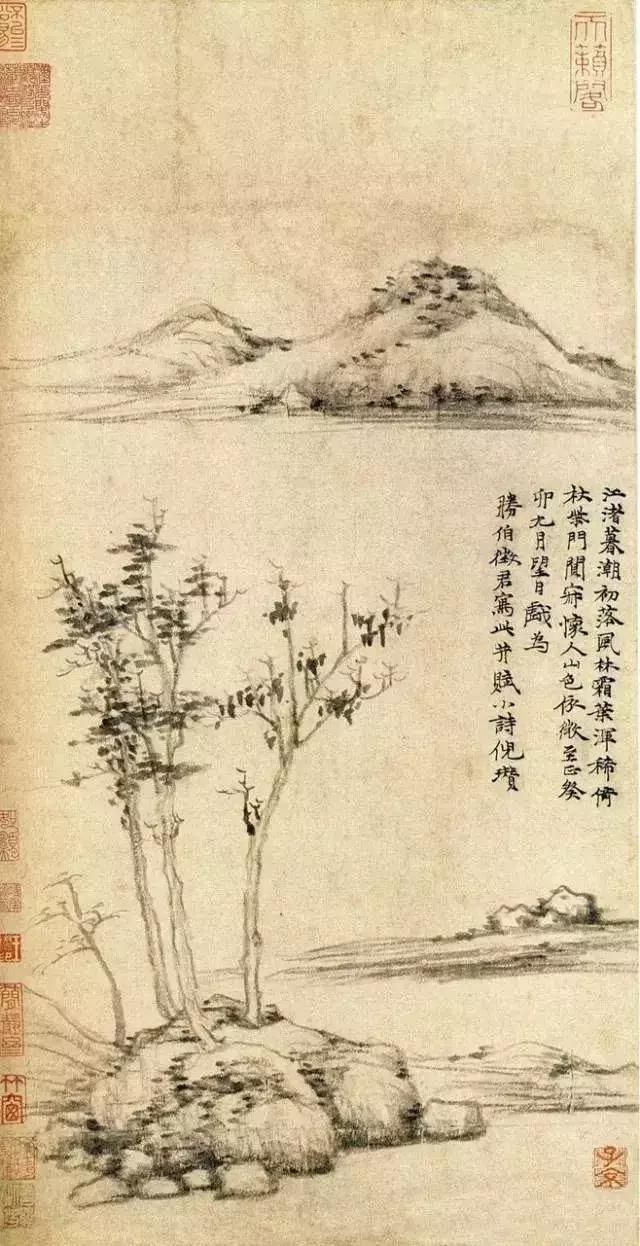 天籟閣
江渚暮潮初落風林霜葉渾稀倚
杖柴門闃寂懷人山色依微至正癸
卯九月望日戲為
勝伯徵君寫此并賦小詩倪瓚
子京
竹窗